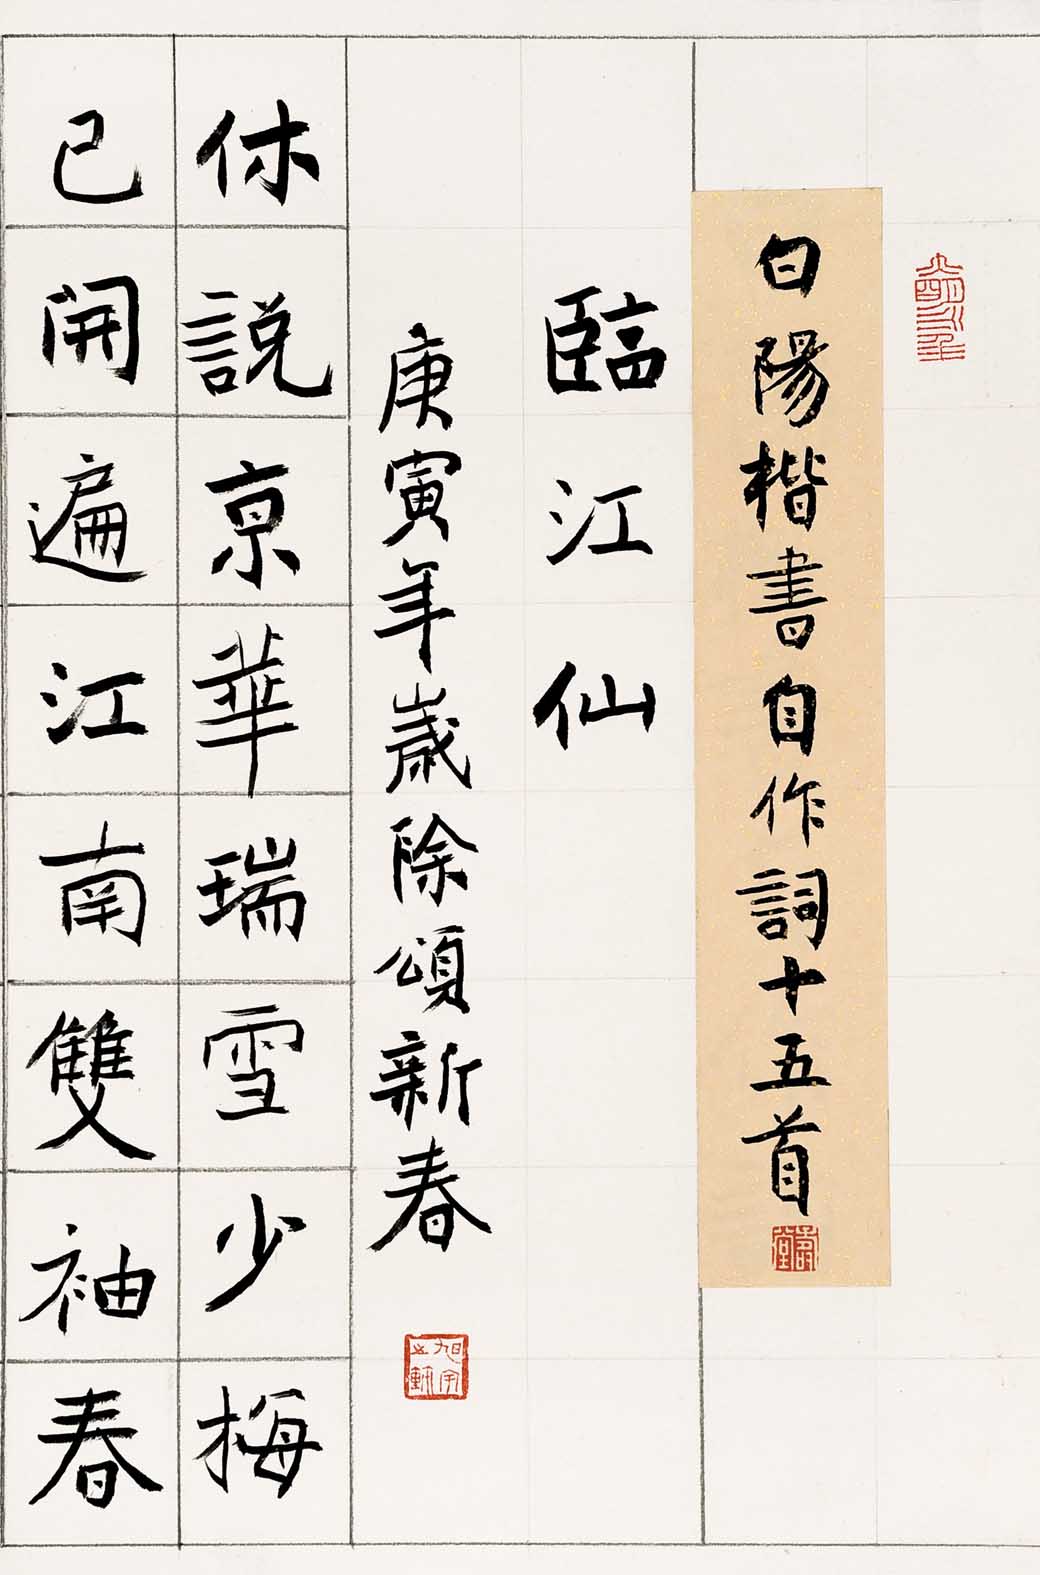 白陽楷書自作詞十五首
臨江仙
庚寅年歲除頌新春
休說京華瑞雪少梅
已開遍江南雙袖春